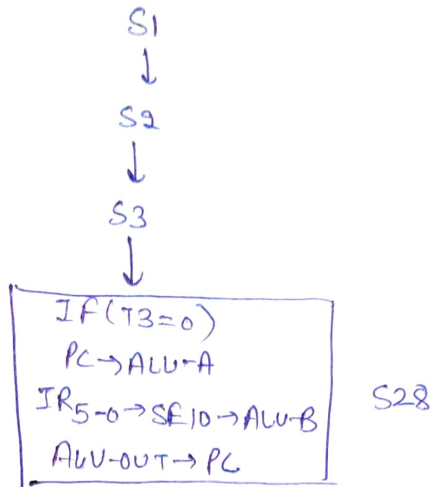 S1
↓
S2
↓
S3
↓
IF(T3=0)
PC→ALU-A
IR5-0→SE10→ALU-B S28
ALU-OUT→PC